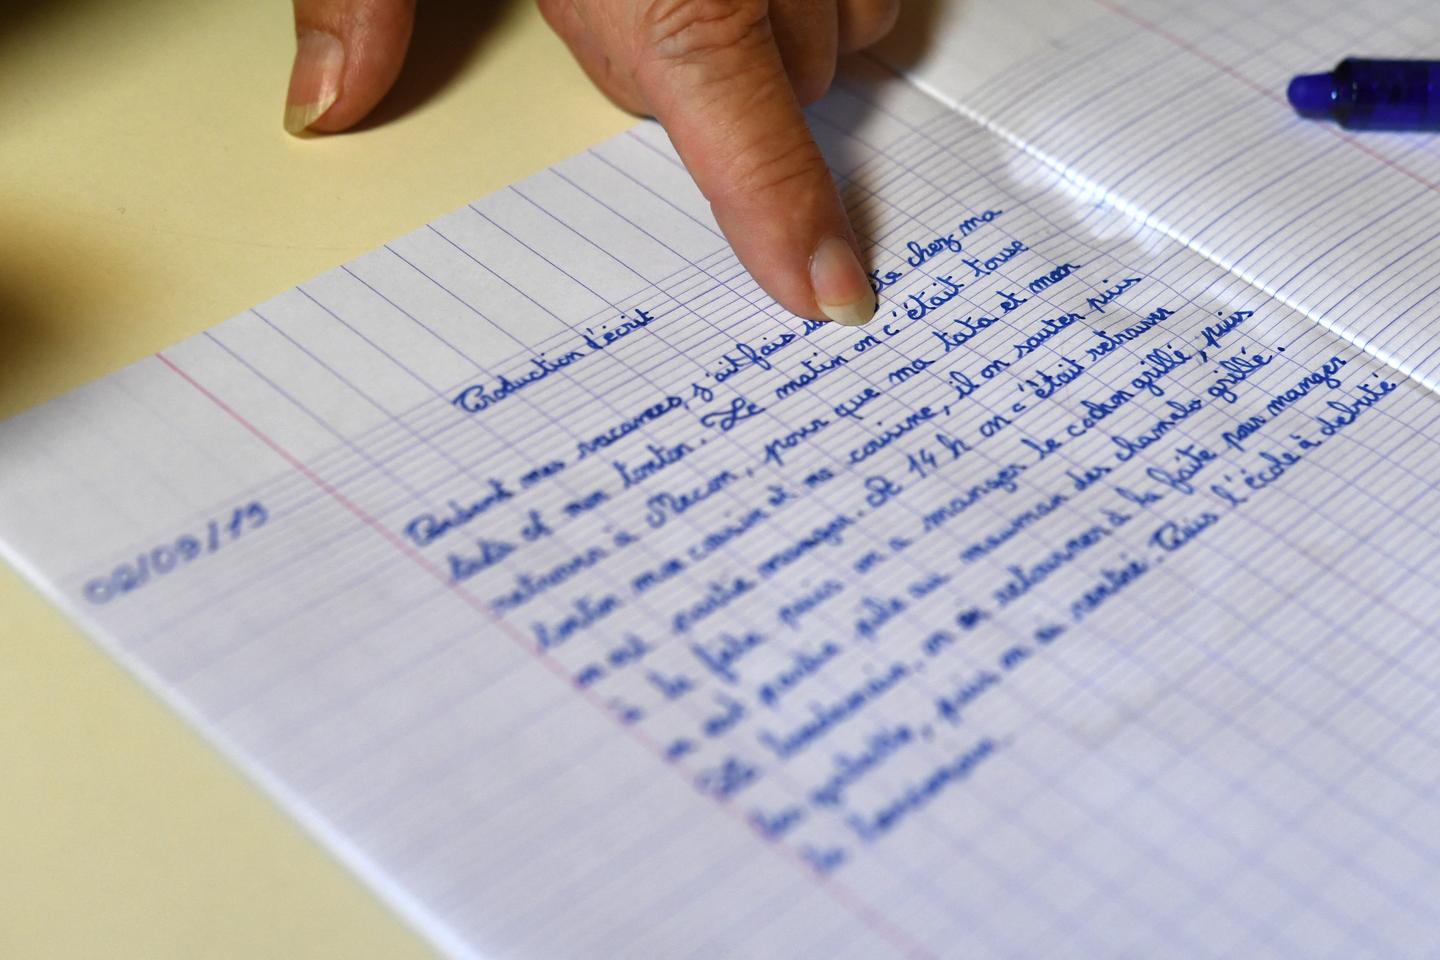 Production d'écrit
02/09/19
Pendant mes vacances, j'ait fais chez ma
tata et mon tonton. Le matin on c'était touse
retrouver à Mecon, pour que ma tata et mon
tonton mon cousin et ma cousine, il on sauter puis
on est partie manger. At 14 h on c'était retrouver
à la fete puis on a manger le cochon grillé, puis
on est partie pile au maman des chamalo grillé.
Le lendemain, on on retourner à la faite pour manger
les , puis on a rentré. Puis l'école à debuté